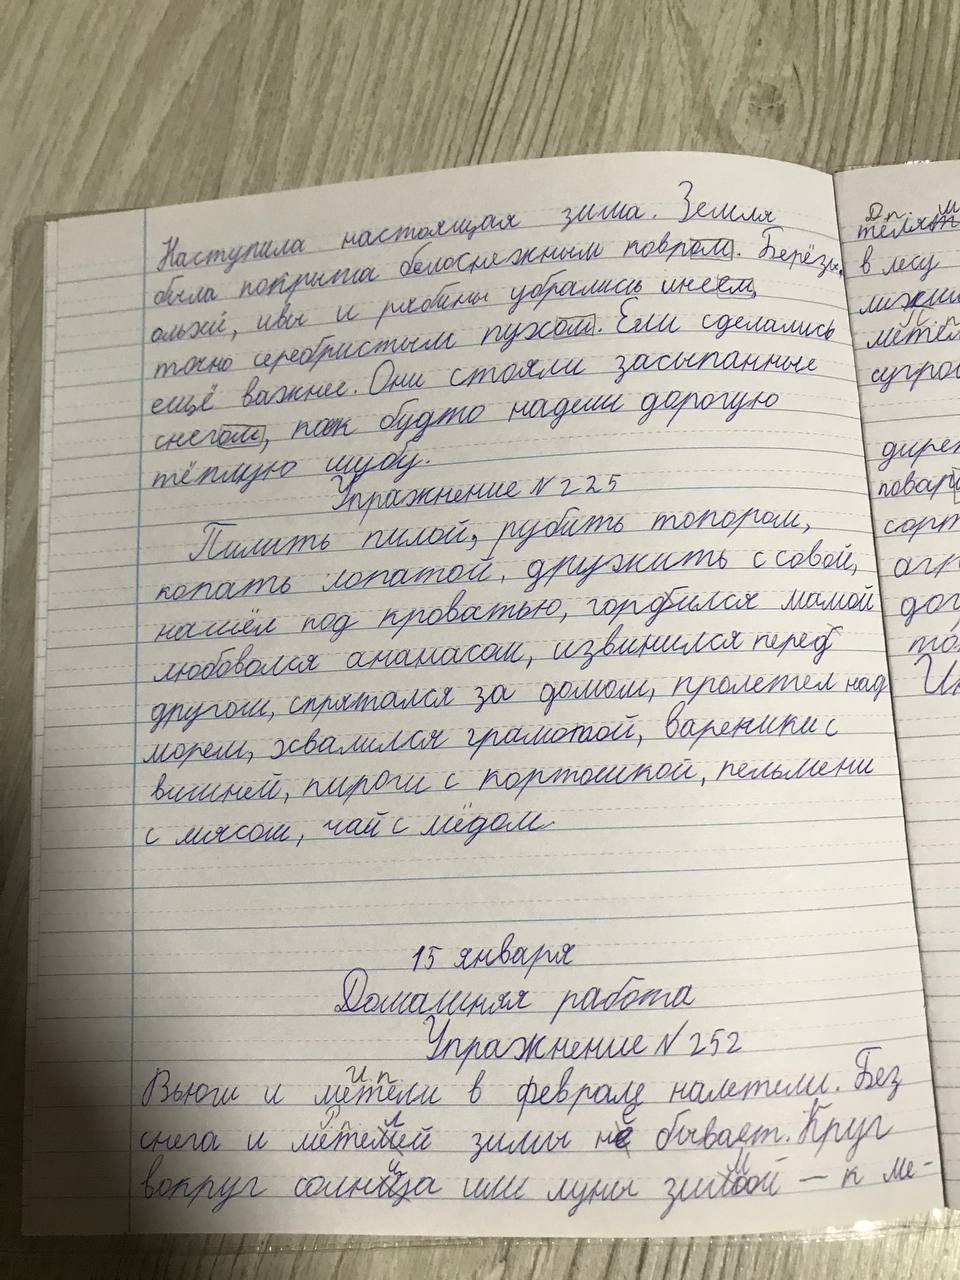 Наступила настоящая зима. Земля
была покрыта белоснежным ковром. Берёзы,
ольхи, ивы и рябины убрались инеем,
точно серебристым пухом. Ели сделались
ещё важнее. Они стояли засыпанные
снегом, как будто надели дорогую
тёплую шубу.
Упражнение №225
Пилить пилой, рубить топором,
копать лопатой, дружить с совой,
нашёл под кроватью, гордился мамой
любовался ананасом, извинился перед
другом, спрятался за домом, пролетел над
морем, хвалился грамотой, вареники с
вишней, пироги с картошкой, пельмени
с мясом, чай с мёдом.
15 января
Домашняя работа
Упражнение №252
И.п.
Вьюги и метели в феврале налетели. Без
Р.п.
снега и метелей зимы не бывает. Круг
вокруг солнца или луны зимой – к ме-
Д.п.
телям
в лесу
метел
сугроб
дирек
повар
сорт
агр
дог